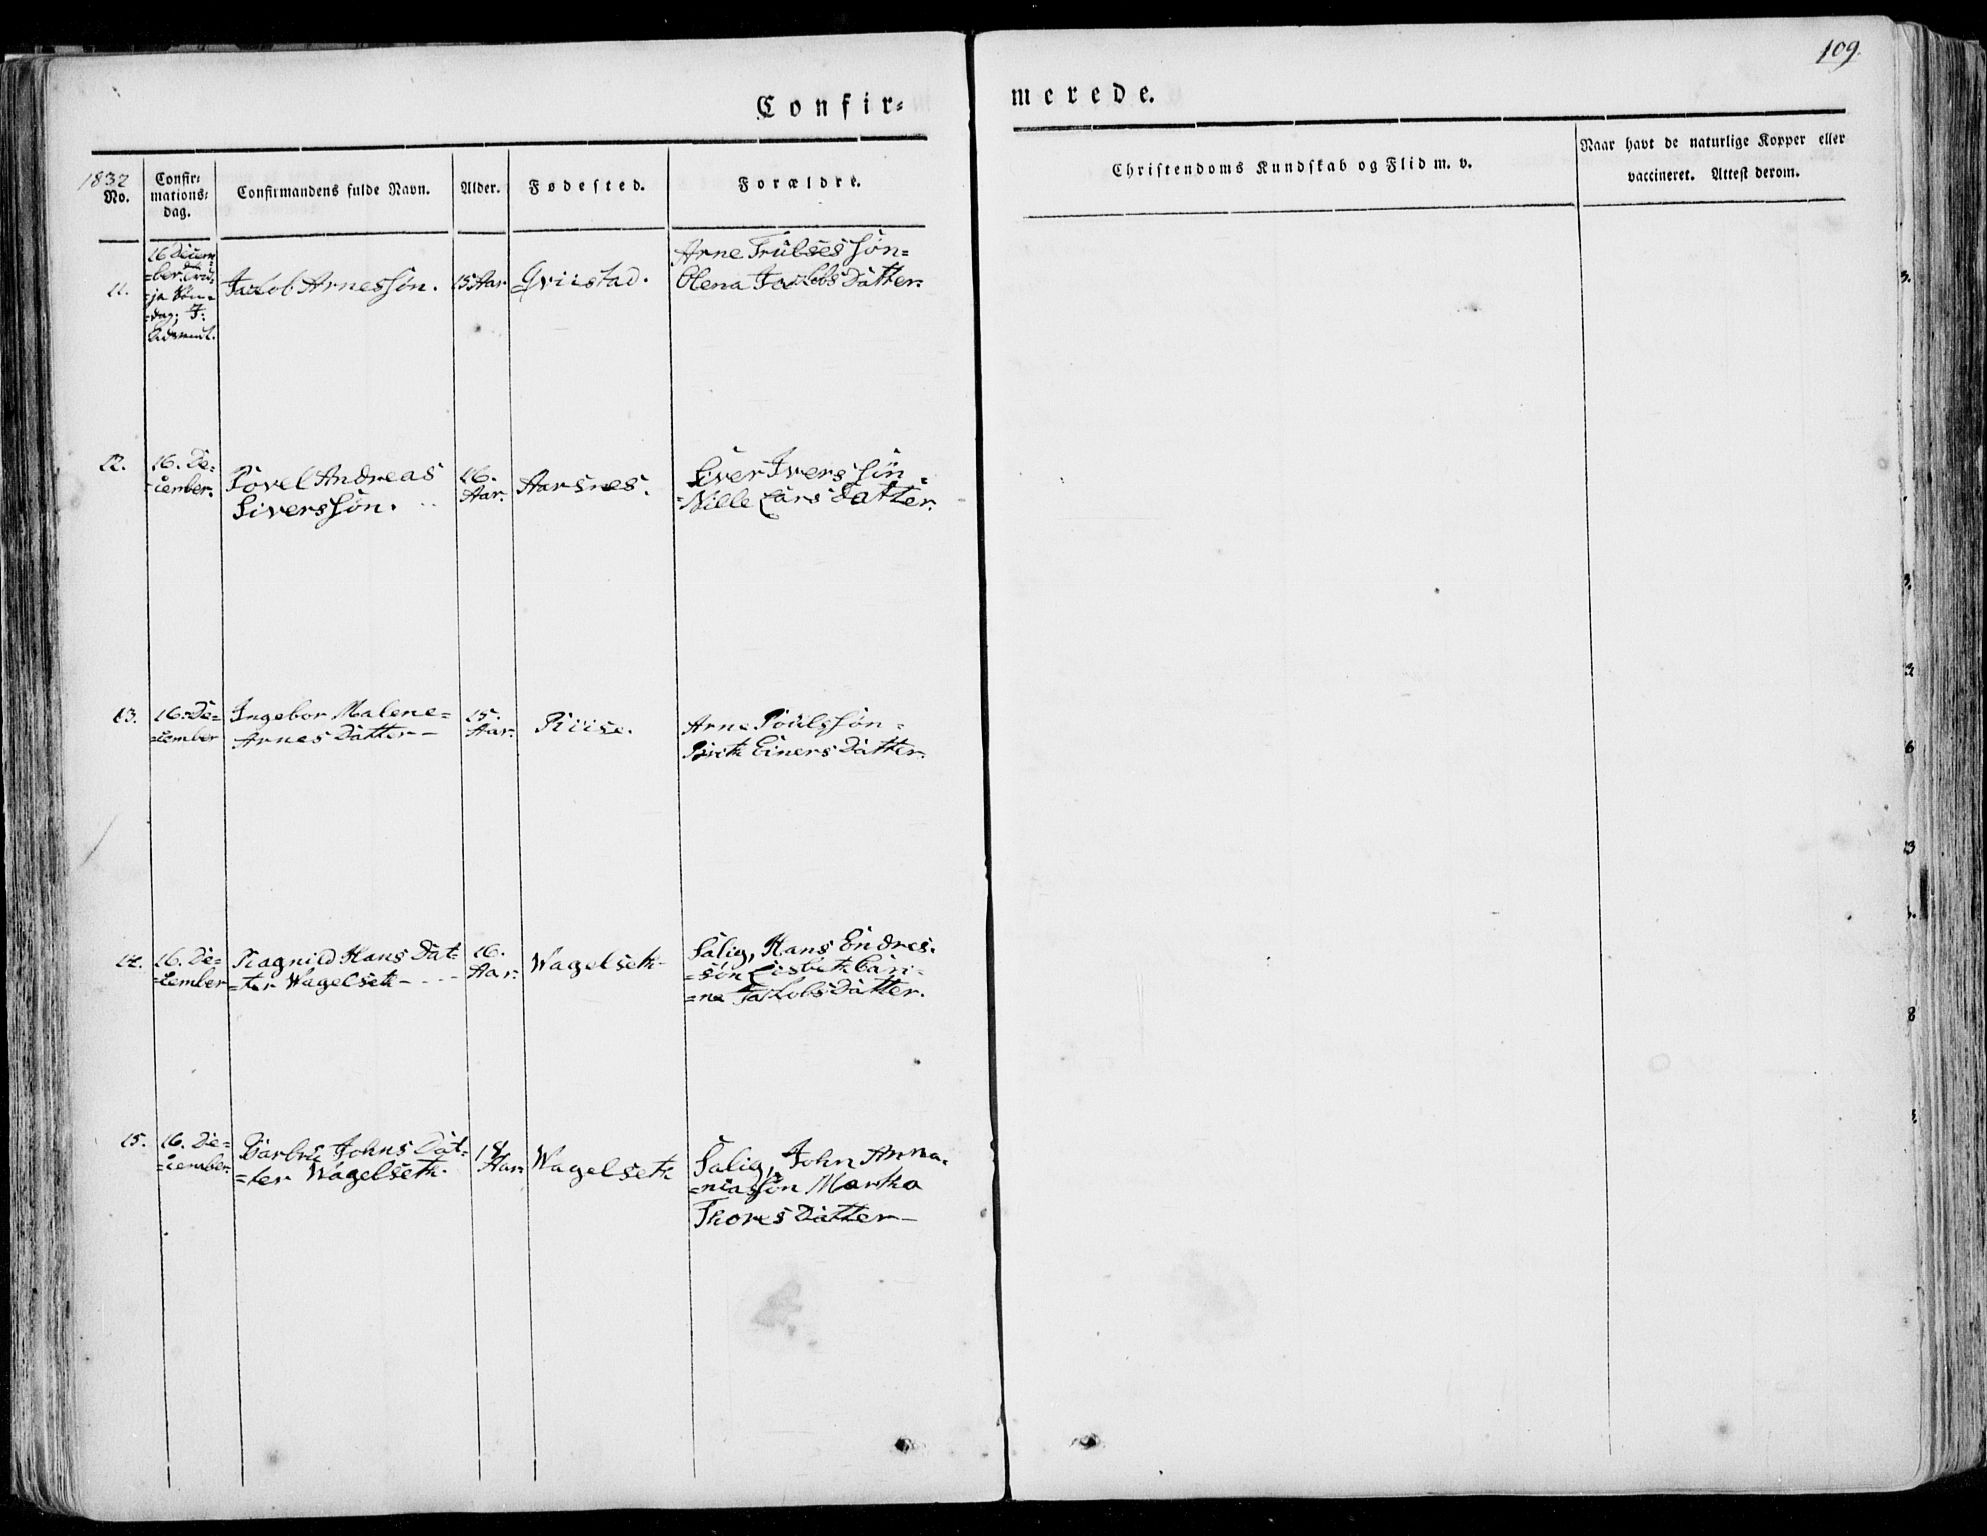 109.
Confir=
merede.
1832
No.
Confir=
mations=
dag.
Confirmandens fulde Navn.
Alder.
Fødested.
Forældre.
Christendoms Kundskab og Flid m. v.
Naar havt de naturlige Kopper eller
vaccineret. Attest derom.
11.
16 Decem=
=ber
=ja Søn=
=dag; I:
Advent.
Jacob Arnessøn.
15 Aar
Qviistad.
Arne Trulsessøn=
Olena Jacobs Datter
12.
16. De=
=cember.
Povel Andreas
Siverssøn.
16.
Aar.
Aarsnes.
Siver Iverssøn
=Nille Lars Datter.
13.
16. De=
=cember
Ingebor Malene=
Arnes Datter—
15.
Aar.
Riise.
Arne Poulssøn=
Birth Einers Datter
14.
16. De=
=cember
Ragnild Hans Dat=
=ter Wagelseth—
16.
Aar.
Wagelseth
Salig, Hans Endres=
=søn Lisbeth Cari=
=ne Jacobs Datter.
15.
16. De=
=cember.
Barbru Johns Dat=
=ter Wagelseth.
18
Aar.
Wagelseth
Salig, John Anna=
=niassøn Martha
Thores Datter—